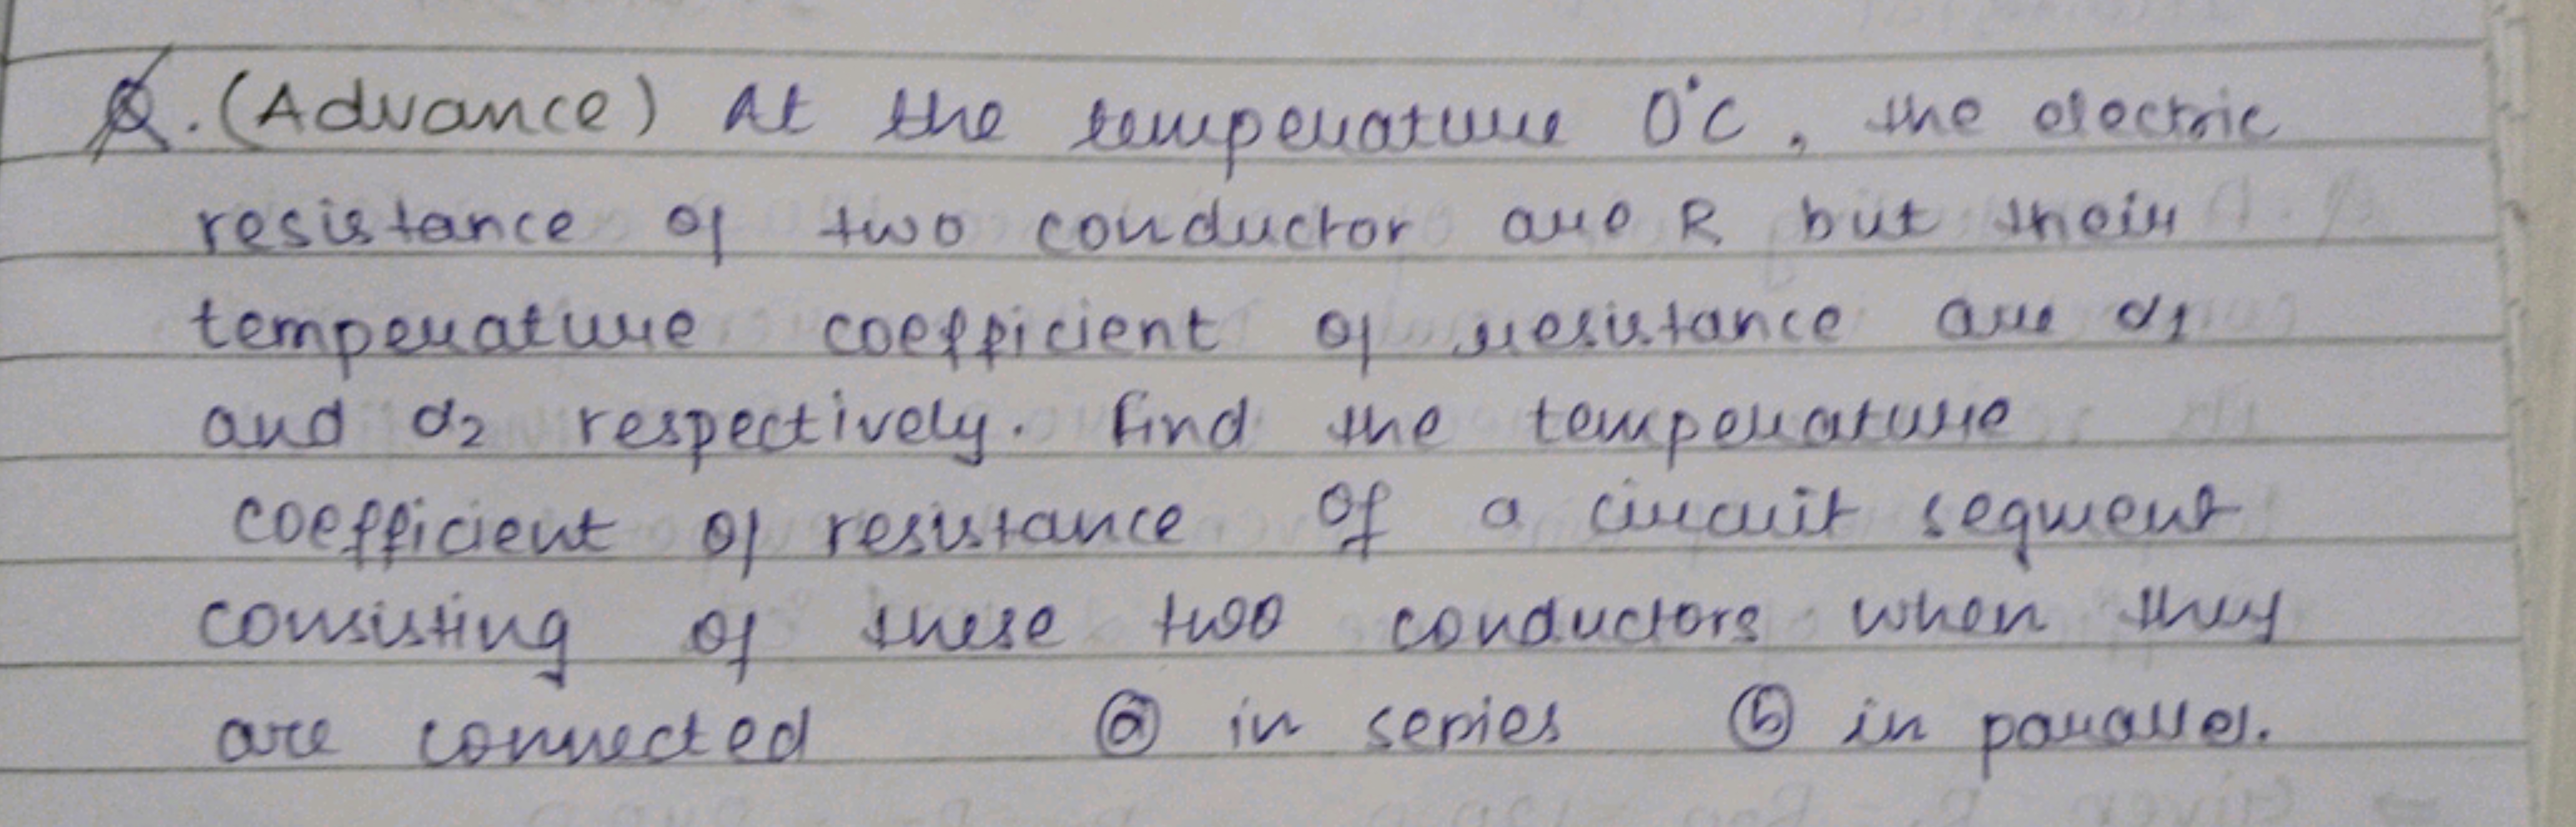 Q. (Advance) At the temperature 0°C, the electric
resistance of two conductor are R but their
temperature coefficient of resistance are α1
and α2 respectively. find the temperature
coefficient of resistance of a circuit segment
consisting of these two conductors when they
are connected ⓐ in series ⓑ in parallel.